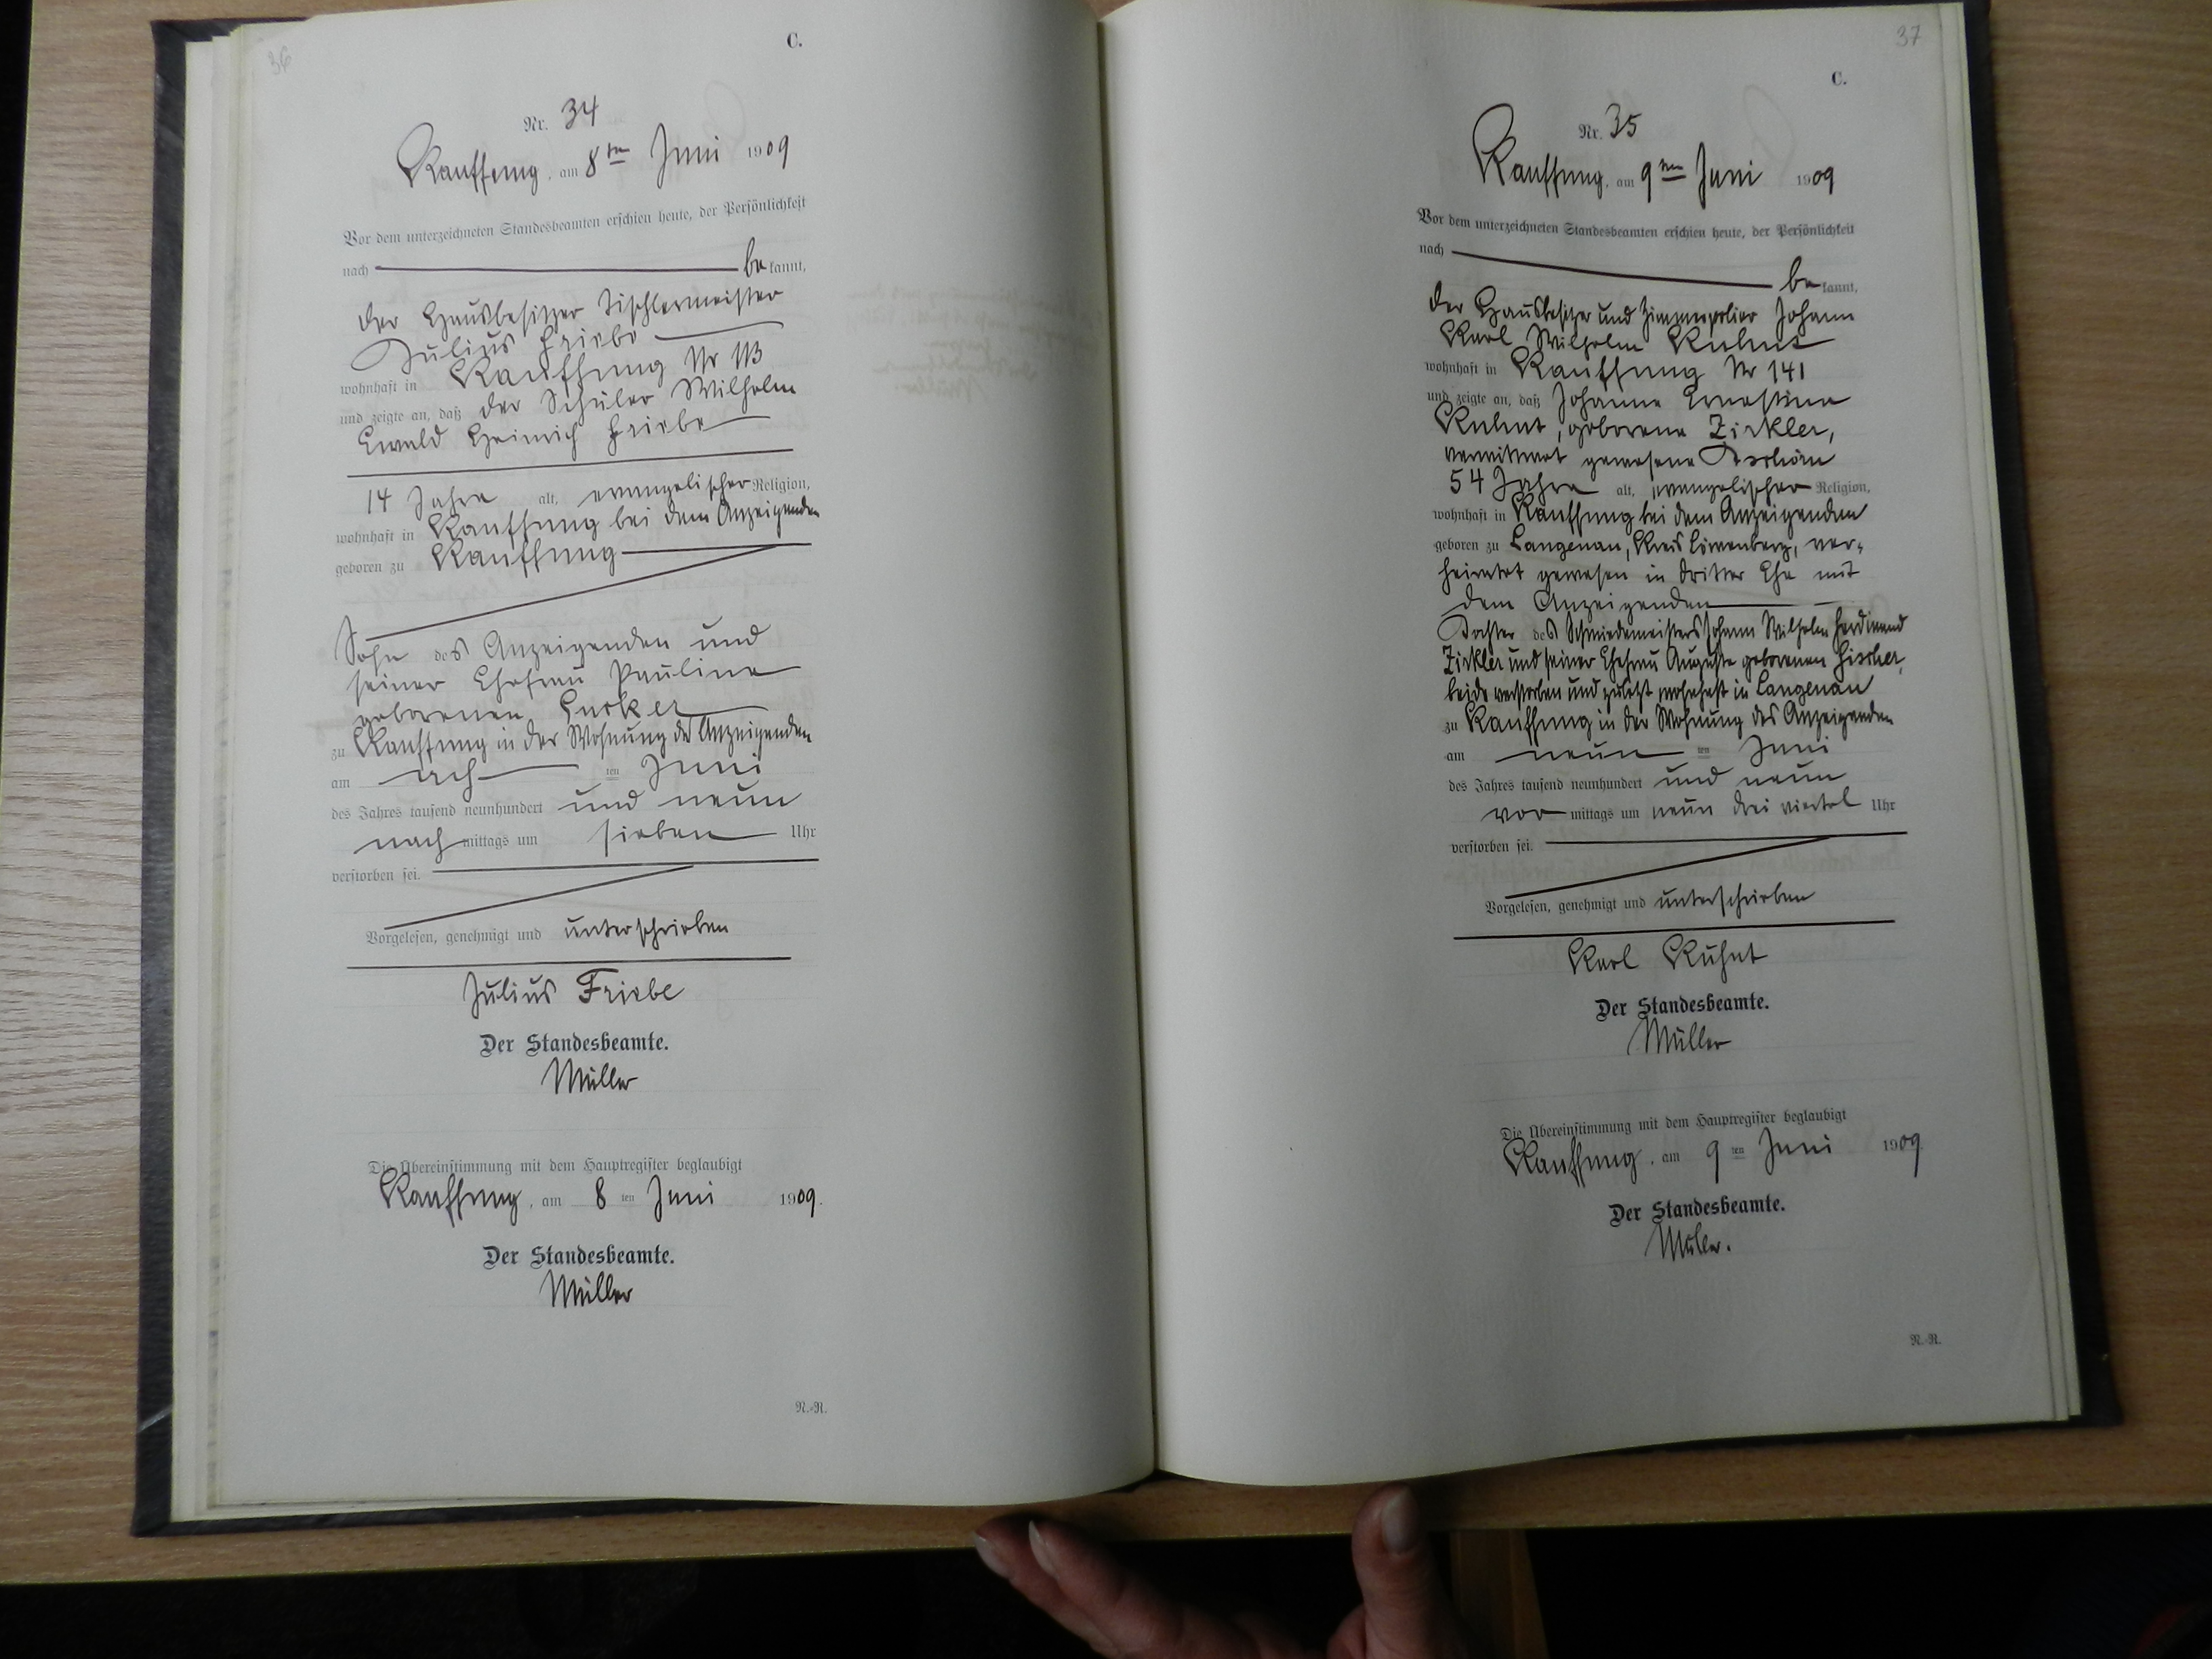 36
C.
Nr. 34
Kauffung, am 8ten Juni 1909
Vor dem unterzeichneten Standesbeamten erschien heute, der Persönlichkeit
nach be kannt,
der Hausbesitzer Tischlermeister
Julius Friebe
wohnhaft in Kauffung Nr 113
und zeigte an, daß der Schüler Wilhelm
Ewald Heinrich Friebe
14 Jahre alt, evangelischer Religion,
wohnhaft in Kauffung bei dem Anzeigenden
geboren zu Kauffung
Sohn des Anzeigenden und
seiner Ehefrau Pauline
geborenen
zu Kauffung in der Wohnung des Anzeigenden
am ach ten Juni
des Jahres tausend neunhundert und neun
nach mittags um sieben Uhr
verstorben sei.
Vorgelesen, genehmigt und unterschrieben
Julius Friebe
Der Standesbeamte.
Müller
Die Übereinstimmung mit dem Hauptregister beglaubigt
Kauffung, am 8 ten Juni 1909.
Der Standesbeamte.
Müller
N.-R.
37
C.
Nr. 35
Kauffung, am 9ten Juni 1909
Vor dem unterzeichneten Standesbeamten erschien heute, der Persönlichkeit
nach be kannt,
der Hausbesitzer und Zimmerpolier Johann
Karl Wilhelm Kuhnt
wohnhaft in Kauffung Nr 141
und zeigte an, daß Johanne Ernestine
Kuhnt, geborene Zirkler,
verwitwet gewesene
54 Jahre alt, evangelischer Religion,
wohnhaft in Kauffung bei dem Anzeigenden
geboren zu Langenau, Kreis Löwenberg, ver-
heiratet gewesen in dritter Ehe mit
dem Anzeigenden
Tochter des Schmiedemeisters Johann Wilhelm Ferdinand
Zirkler und seiner Ehefrau Auguste geborenen Fischer,
beide verstorben und zuletzt wohnhaft in Langenau
zu Kauffung in der Wohnung des Anzeigenden
am neun ten Juni
des Jahres tausend neunhundert und neun
vor mittags um neun drei viertel Uhr
verstorben sei.
Vorgelesen, genehmigt und unterschrieben
Karl Kuhnt
Der Standesbeamte.
Müller
Die Übereinstimmung mit dem Hauptregister beglaubigt
Kauffung, am 9 ten Juni 1909.
Der Standesbeamte.
Müller.
N.-R.